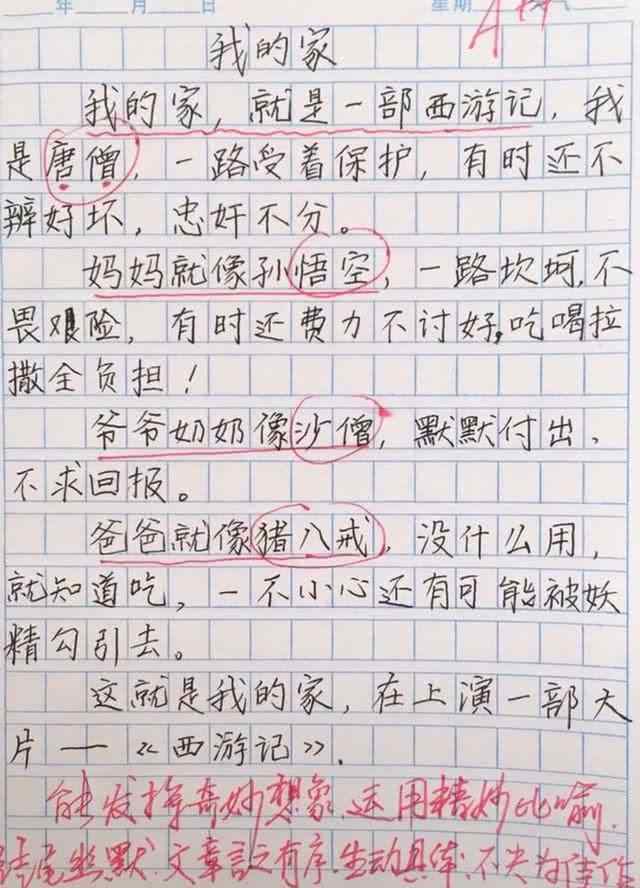 年 月 日 星期
A++
我的家
我的家，就是一部西游记，我
是唐僧，一路受着保护，有时还不
辨好坏，忠奸不分。
妈妈就像孙悟空，一路坎坷，不
畏艰险，有时还费力不讨好，吃喝拉
撒全负担！
爷爷奶奶像沙僧，默默付出、
不求回报。
爸爸就像猪八戒，没什么用，
就知道吃，一不小心还有可能被妖
精勾引去。
这就是我的家，在上演一部大
片——《西游记》.
能发挥奇妙想象，运用精妙比喻，
结尾幽默，文章言之有序，生动具体，不失为佳作